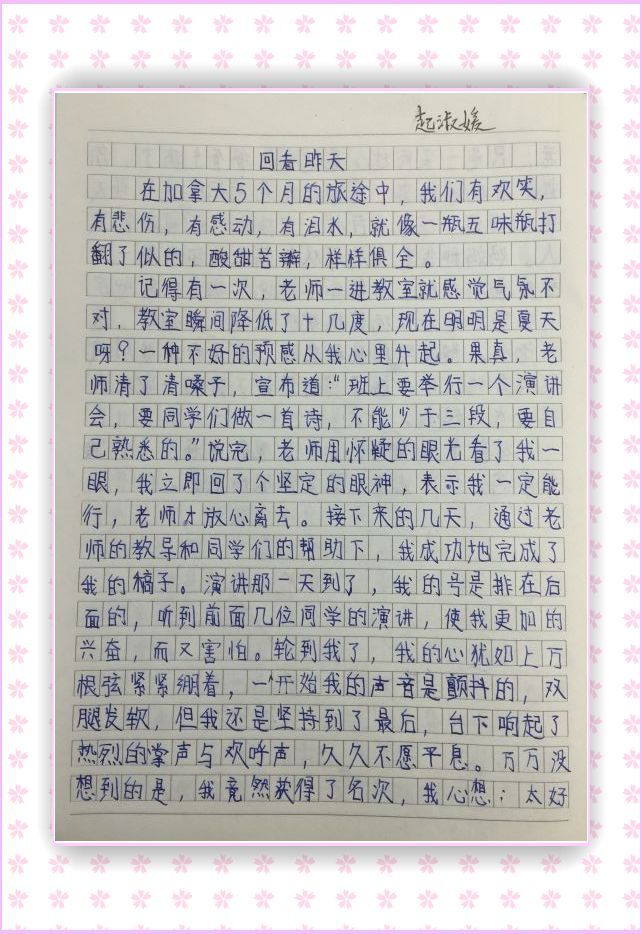 起淑媛
回看昨天
在加拿大5个月的旅途中，我们有欢笑，
有悲伤，有感动，有泪水，就像一瓶五味瓶打
翻了似的，酸甜苦辣，样样俱全。
记得有一次，老师一进教室就感觉气氛不
对，教室瞬间降低了十几度，现在明明是夏天
呀？一种不好的预感从我心里升起。果真，老
师清了清嗓子，宣布道：“班上要举行一个演讲
会，要同学们做一首诗，不能少于三段，要自
己熟悉的。”说完，老师用怀疑的眼光看了我一
眼，我立即回了个坚定的眼神，表示我一定能
行，老师才放心离去。接下来的几天，通过老
师的教导和同学们的帮助下，我成功地完成了
我的稿子。演讲那一天到了，我的号是排在后
面的，听到前面几位同学的演讲，使我更加的
兴奋，而又害怕。轮到我了，我的心犹如上万
根弦紧紧绷着，一开始我的声音是颤抖的，双
腿发软，但我还是坚持到了最后，台下响起了
热烈的掌声与欢呼声，久久不愿平息。万万没
想到的是，我竟然获得了名次，我心想：太好